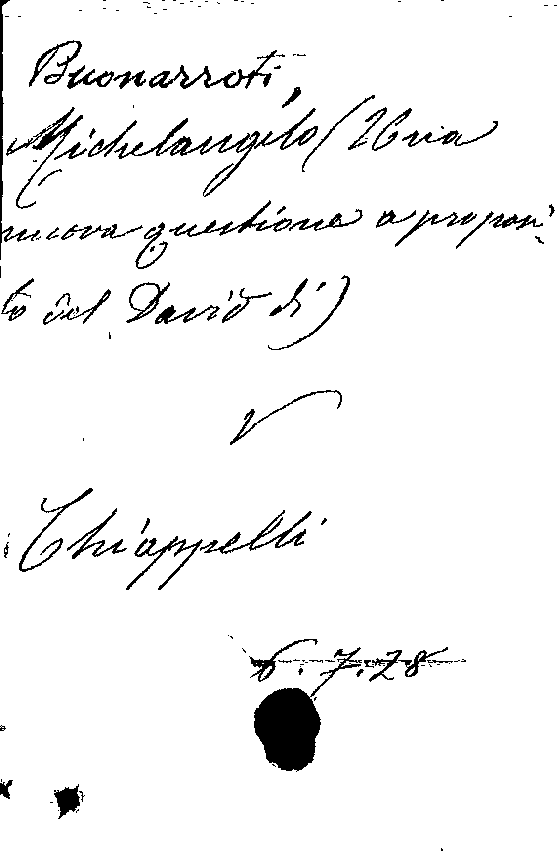 Buonarroti,
Michelangelo (Una
nuova questione a proposi-
to del David di)
V
Chiappelli
6.7.28